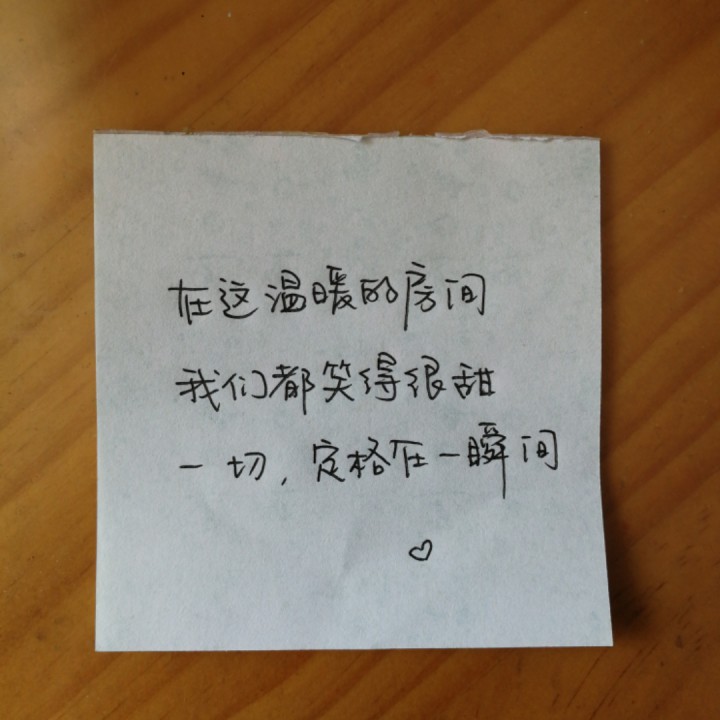 在这温暖的房间
我们都笑得很甜
一切,定格在一瞬间